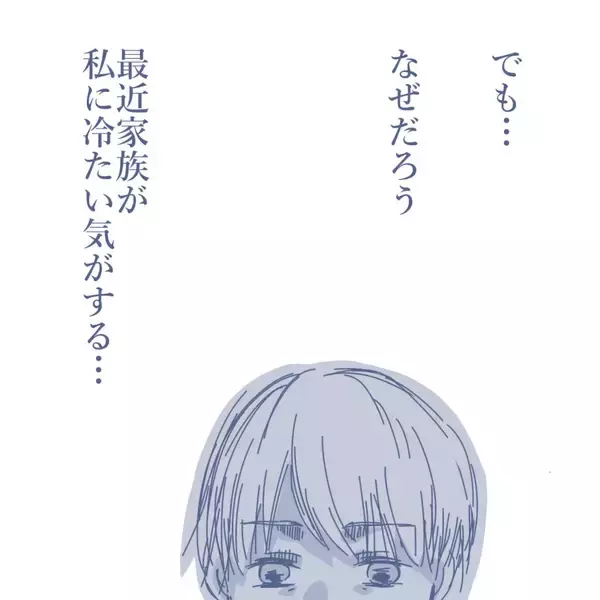 でも…
なぜだろう
最近家族が
私に冷たい気がする…